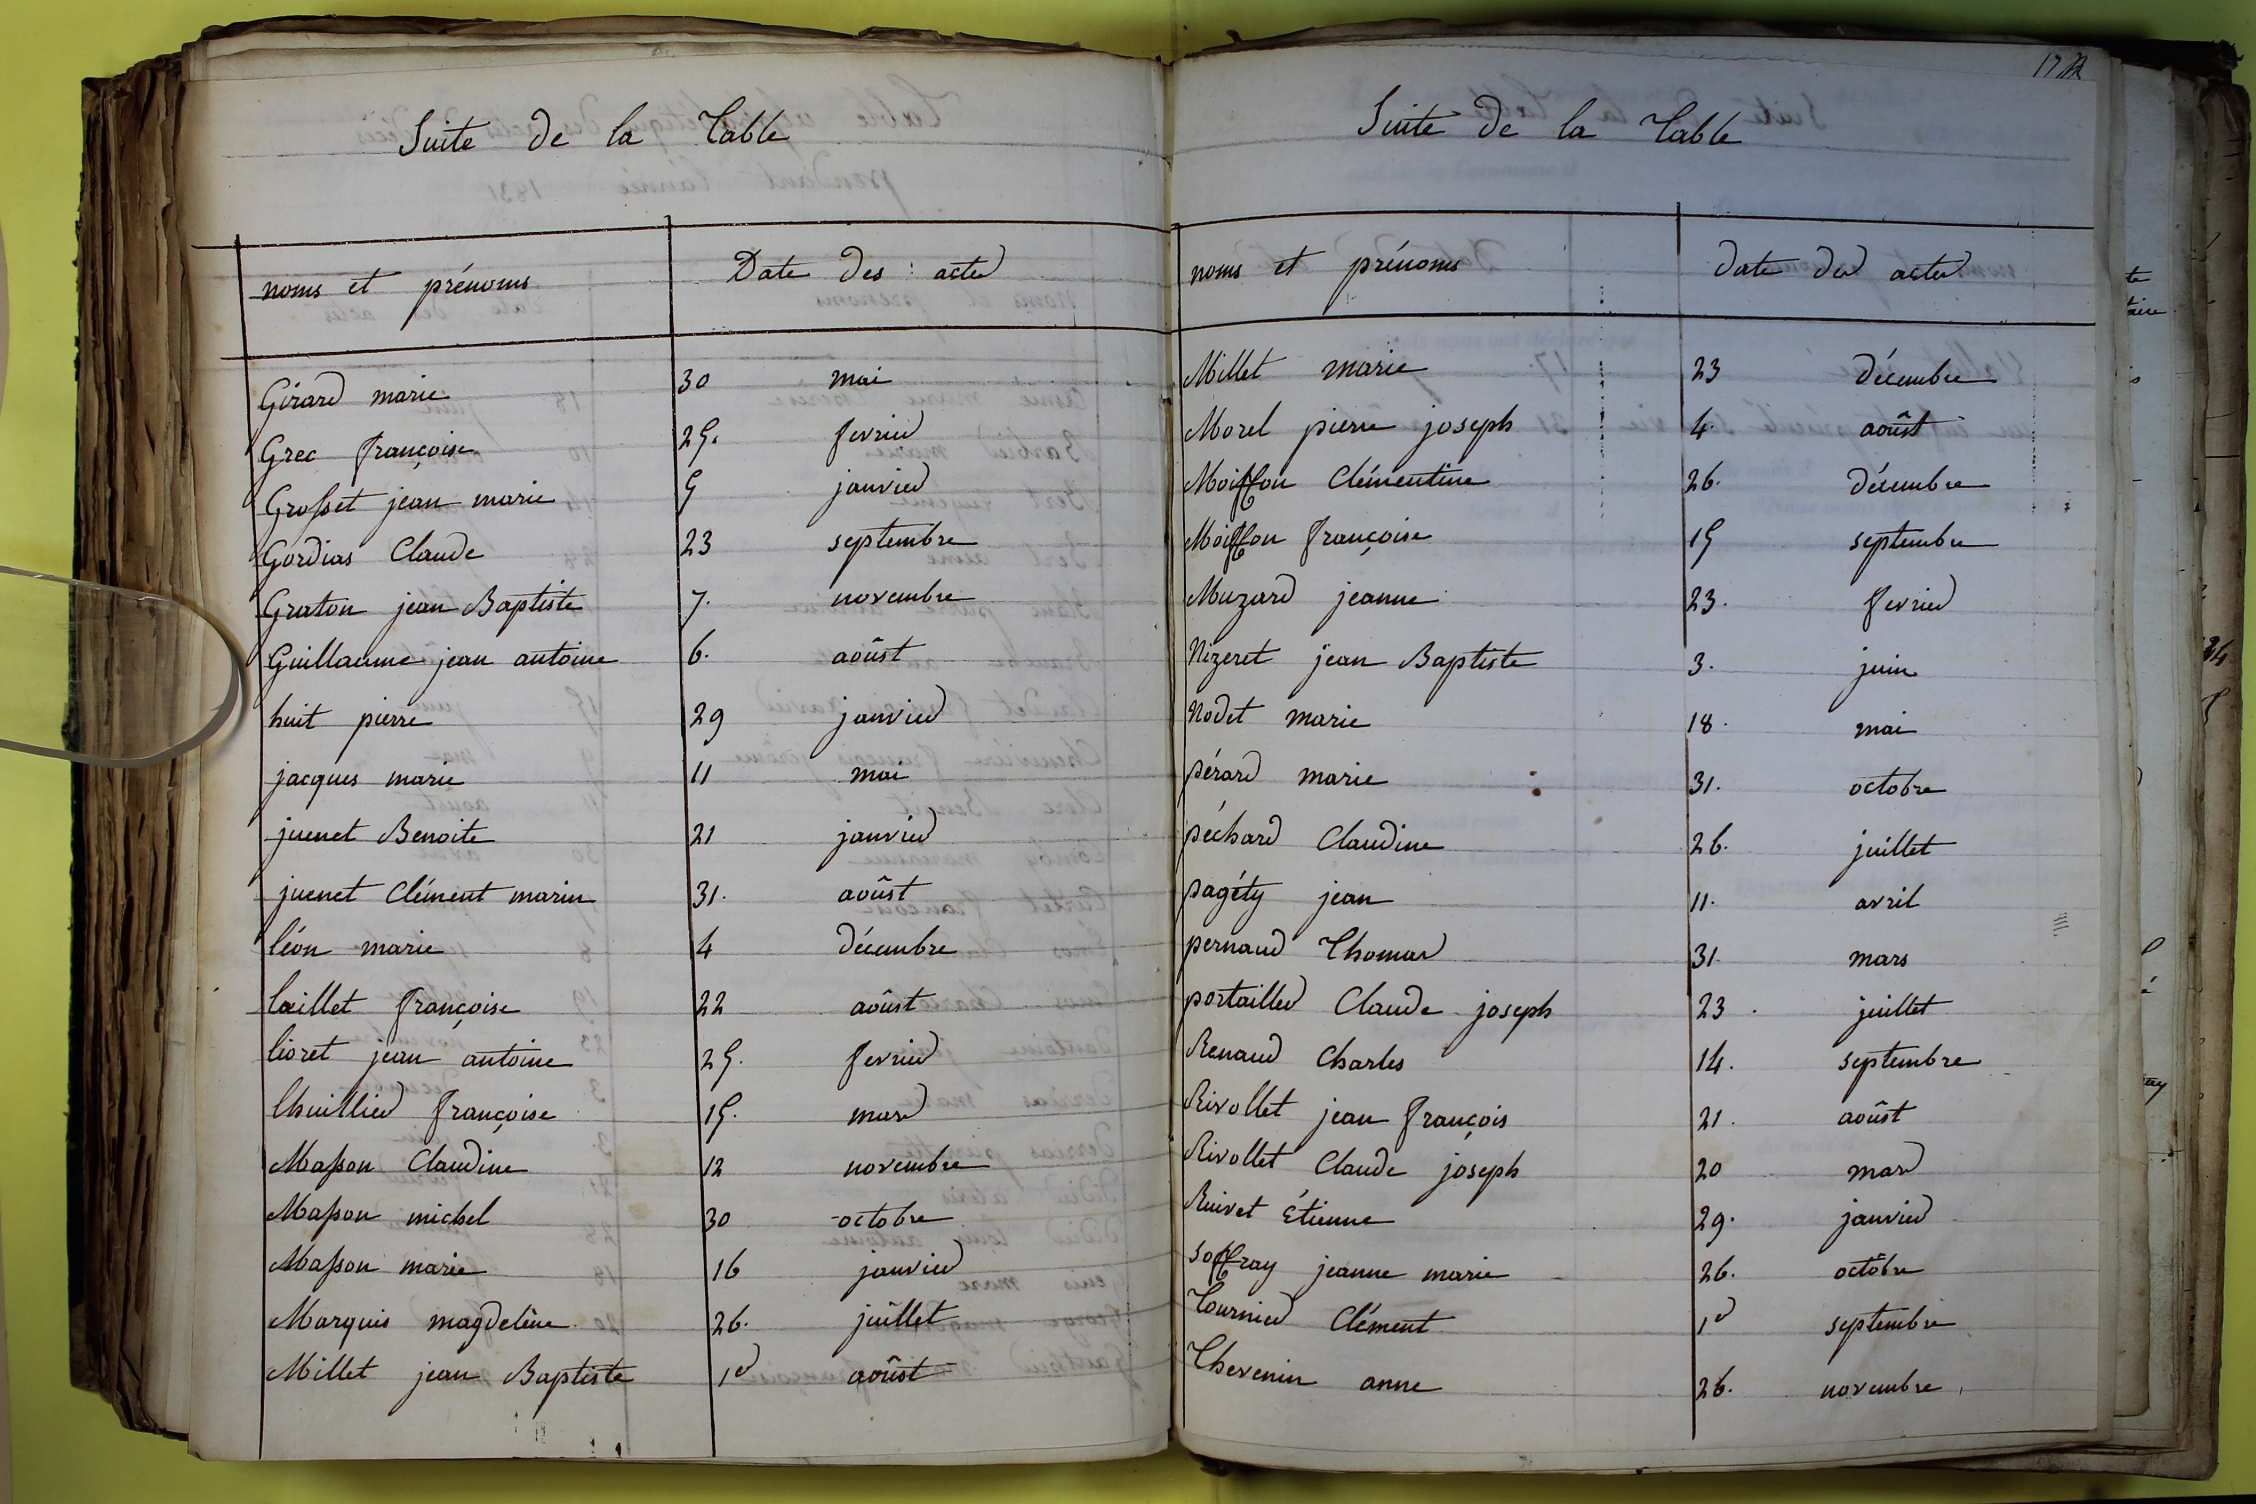 Suite de la Table
noms et prénoms Date des actes
Girard marie 30 mai
Grec françoise 25. fevrier
Grosset jean marie 5 janvier
Gordias Claude 23 septembre
Graton jean Baptiste 7. novembre
Guillaume jean antoine 6. aoûst
huit pierre 29 janvier
jacques marie 11 mai
juenet Benoite 21 janvier
juenet Clément marin 31. aoûst
léon marie 4 décembre
laillet françoise 22 aoûst
lioret jean antoine 25. fevrier
lhuillier françoise 15. mars
Masson Claudine 12 novembre
Masson michel 30 octobre
Masson marie 16 janvier
Marquis magdeleine 26. juillet
Millet jean Baptiste 1er aoûst
Suite de la Table
noms et prénoms date des actes
Millet marie 23 décembre
Morel pierre joseph 4. aoûst
Moiffon Clémentine 26. décembre
Moiffon françoise 15 septembre
Muzard jeanne 23. fevrier
Nizeret jean Baptiste 3. juin
Nodet marie 18. mai
pérard marie 31. octobre
péchard Claudine 26. juillet
pagéty jean 11. avril
pernaud Thomas 31. mars
portailler Claude joseph 23. juillet
Renaud Charles 14. septembre
Rivollet jean françois 21. aoûst
Rivollet Claude joseph 20 mars
Ruivet Étienne 29. janvier
soffray jeanne marie 26. octobre
Tournier Clément 1er septembre
Thevenin anne 26. novembre